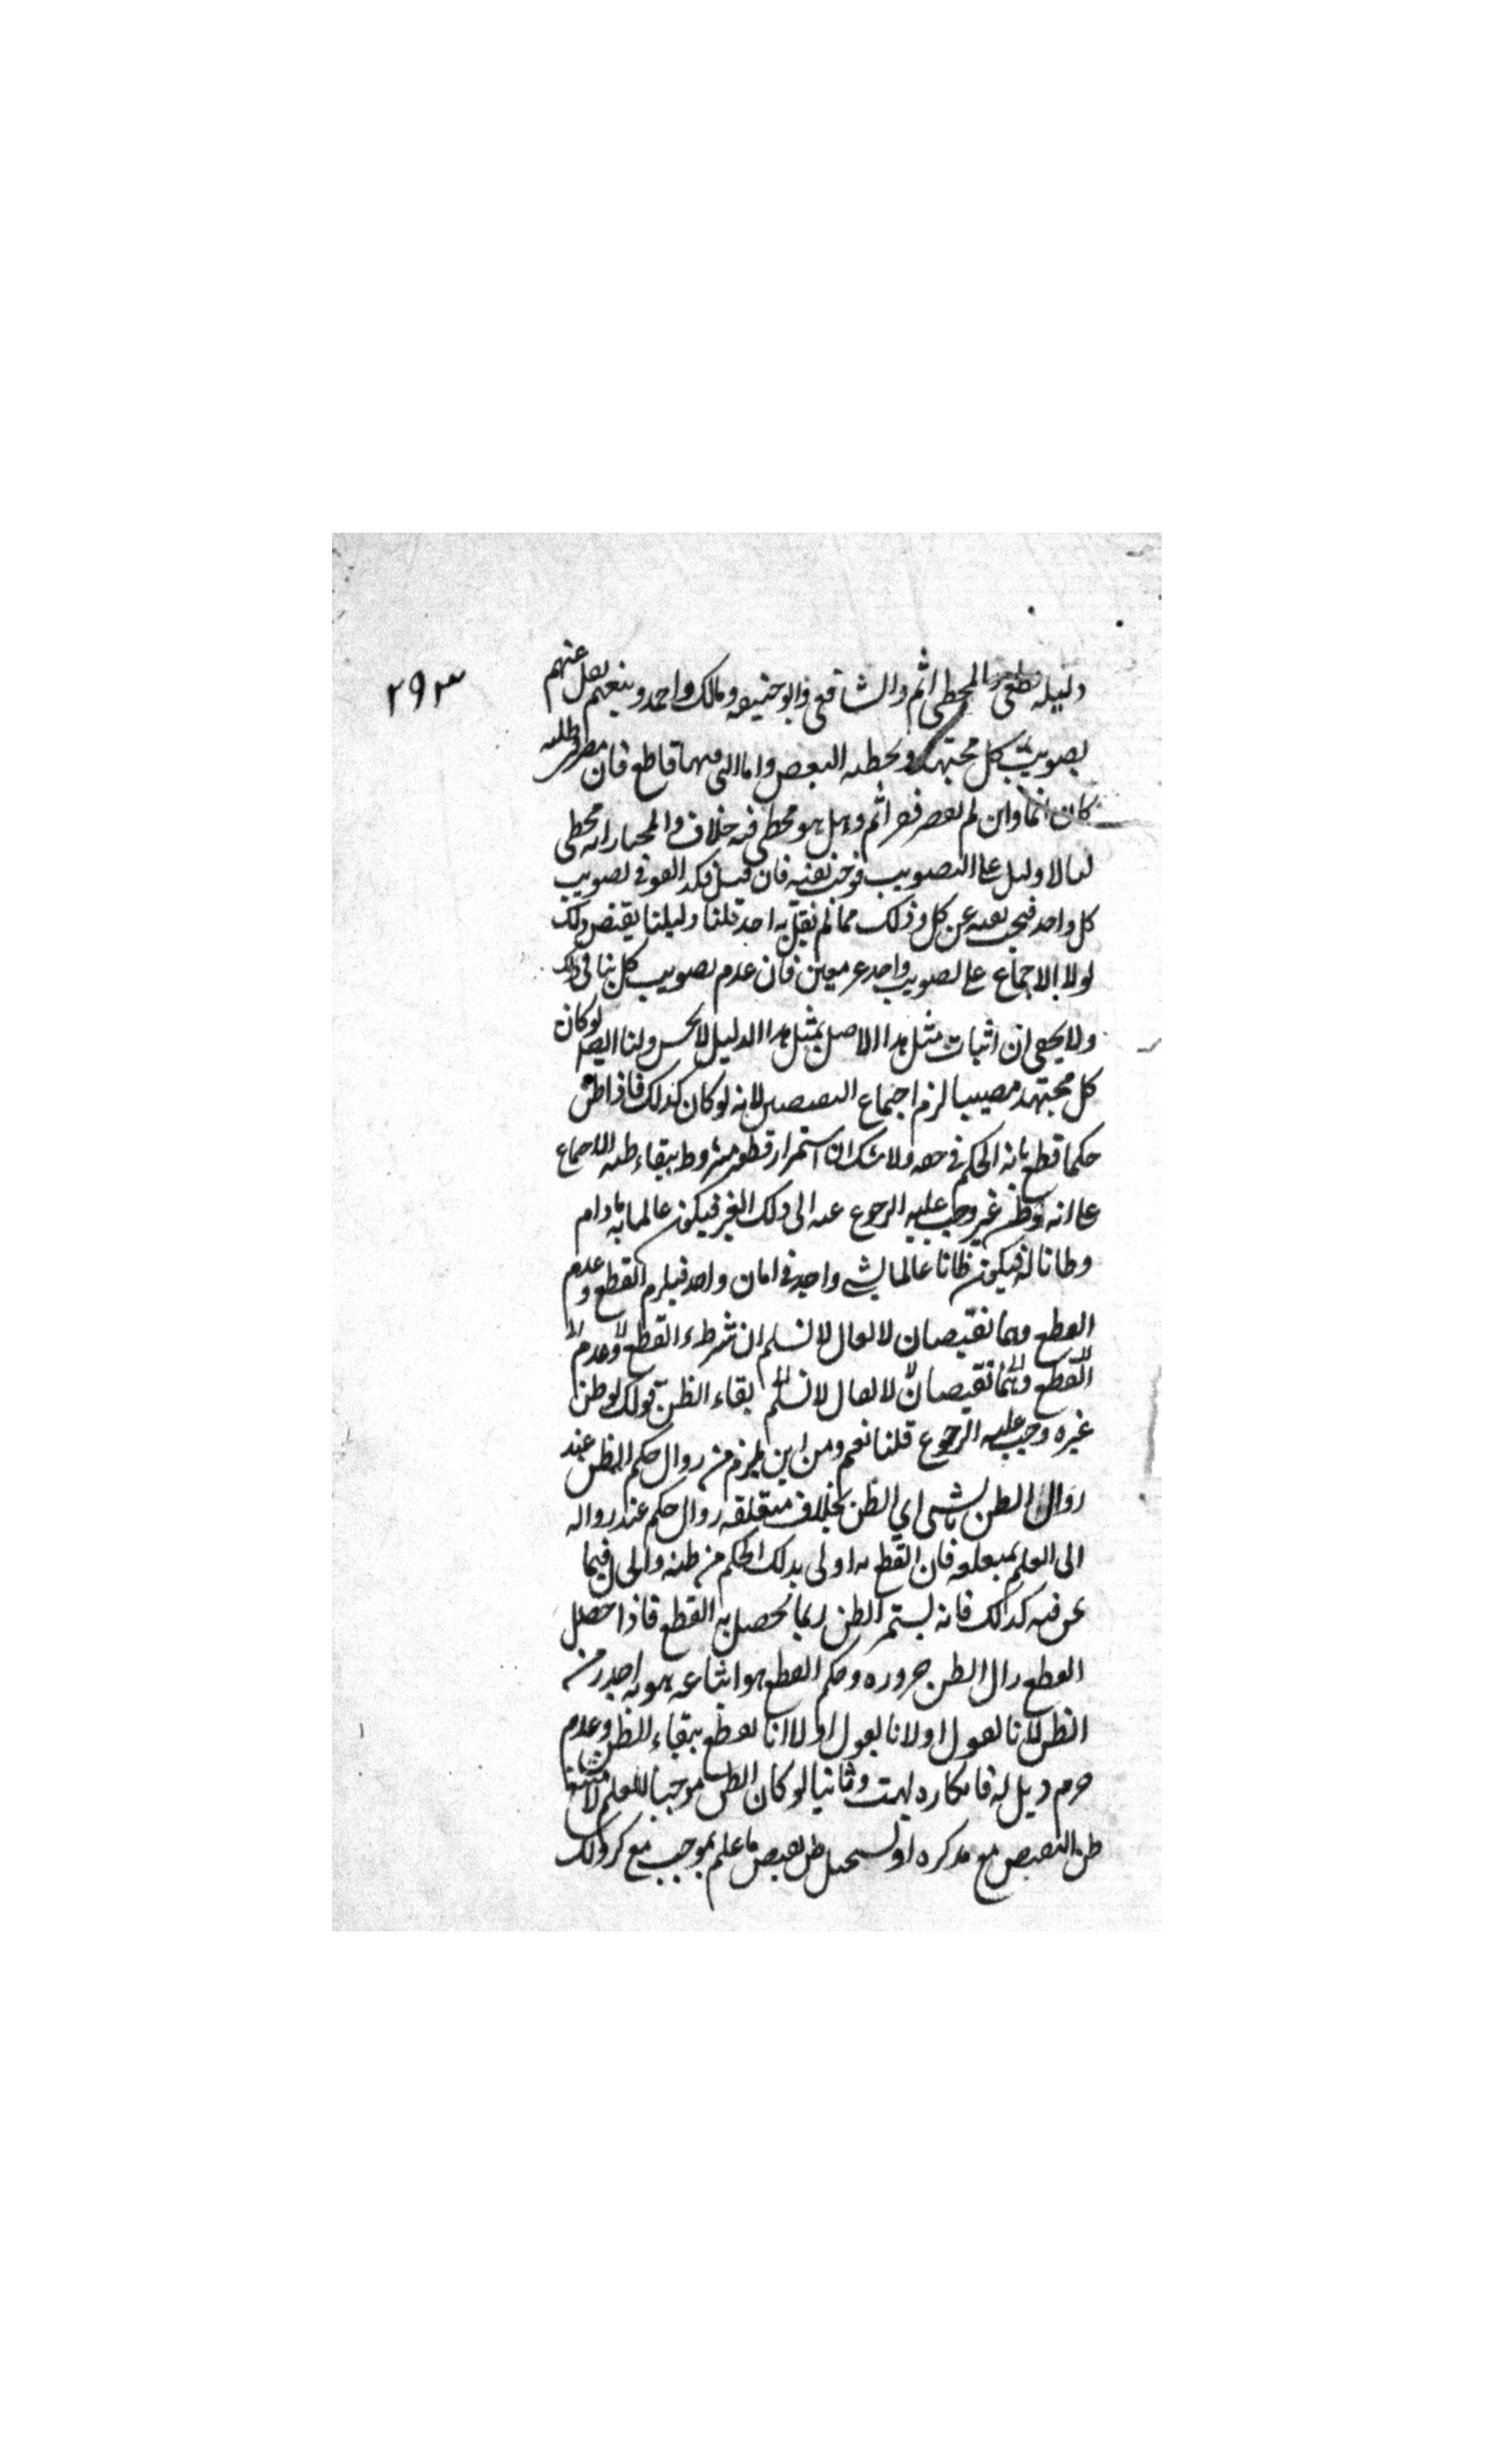 ٢٩٣
دليله ظنى والمخطى اثم والشافعى وابو حنيفه ومالك واحمد وغيرهم نقل عنهم
تصويب كل مجتهد وتخطئه البعض واما التى فيها قاطع فان قصر فى طلبه
كان اثما وان لم يقصر فغير اثم وهل هو مخطى فيه خلاف والمختار انه مخطى
لنا لا دليل على التصويب فوجب نفيه فان قيل فكذا القول فى تصويب
كل واحد فيجب نفيه عن كل وذلك مما لم يقل به احد قلنا دليلنا يقتضى ذلك
لولا الاجماع على تصويب واحد غير معين فان عدم تصويب كل ينافى ذلك
ولا يخفى ان اثبات مثل هذا الاصل بمثل هذا الدليل لا يحسن ولنا ايضا لو كان
كل مجتهد مصيبا لزم اجتماع النقيضين لانه لو كان كذلك فاذا ظن
حكما قطع بانه الحكم فى حقه ولا شك ان استمرار قطعه مشروط ببقاء ظنه للاجماع
على انه لو ظن غيره وجب عليه الرجوع عنه الى ذلك الغير فيكون عالما به ما دام
وظانا له فيكون ظانا عالما بشى واحد فى زمان واحد فيلزم القطع وعدم
القطع وهما نقيضان لا يقال لا نسلم ان شرط القطع وعدم
القطع وهما نقيضان لا يقال لا نسلم بقاء الظن قولك لو ظن
غيره وجب عليه الرجوع قلنا نعم ومن اين يلزم من زوال حكم الظن عند
زوال الظن بالشى اى الظن بخلاف متعلقه زوال حكمه عند زواله
الى العلم بمتعلقه فان القطع به اولى بذلك الحكم من ظنه والحال فيما
نحن فيه كذلك فانه يستمر الظن ريثما يحصل به القطع فاذا حصل
القطع زال الظن ضروره وحكم القطع هو اتباعه هو به اجدر من
الظن لانا نقول اولا انا نقول اولا انا نقطع ببقاء الظن وعدم
جزم مزيل له فانكاره بهت وثانيا لو كان الظن موجبا للعلم لامتنع
ظن النقيض مع تذكره اذ يستحيل ظن نقيض ما علم بموجب مع تذكر ذلك